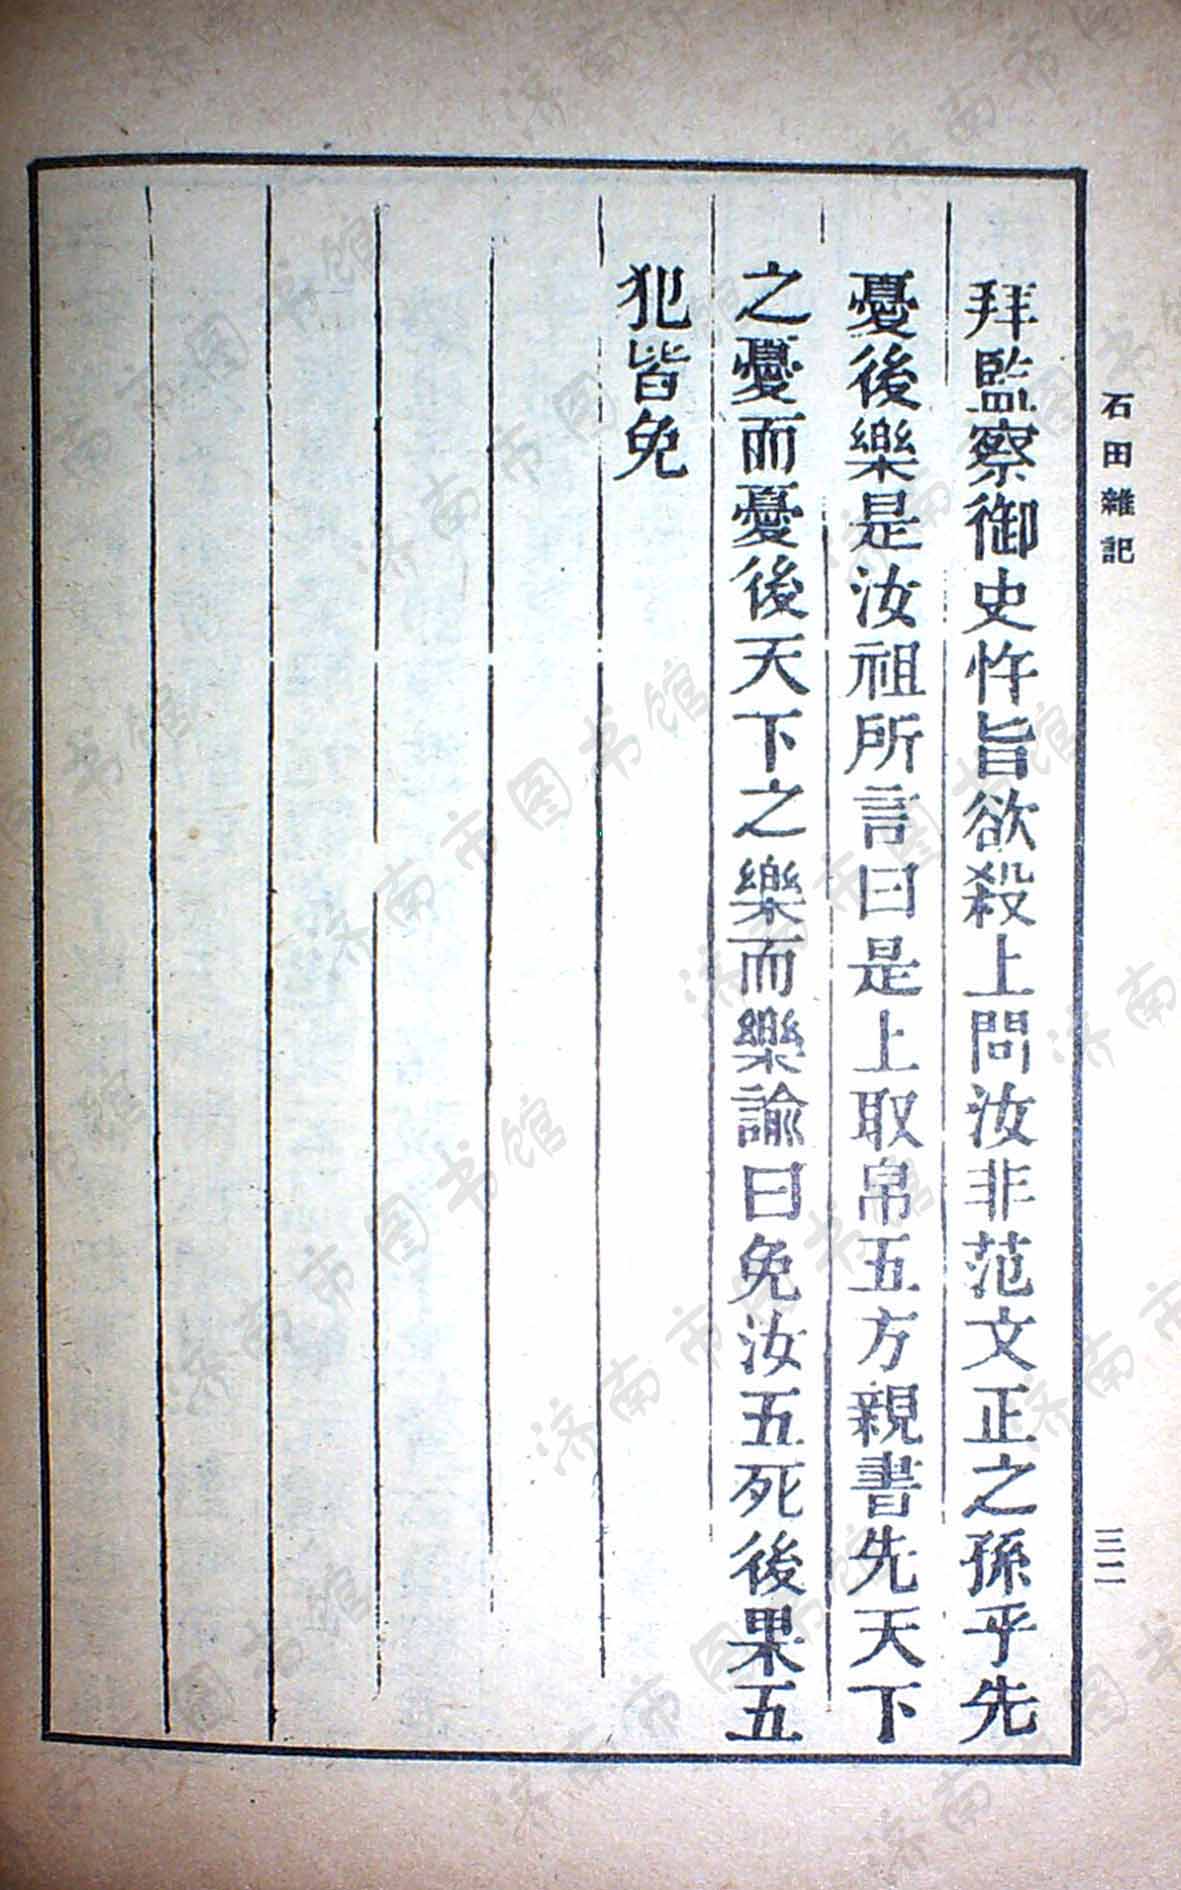 石田雜記
三二
拜監察御史忤旨欲殺上問汝非范文正之孫乎先
憂後樂是汝祖所言曰是上取帛五方親書先天下
之憂而憂後天下之樂而樂諭曰免汝五死後果五
犯皆免
济南市图书馆